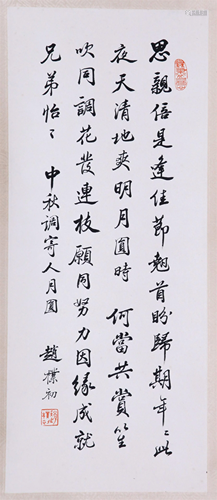 思親倍是逢佳節翹首盼歸期年〻此
夜天清地爽明月圓時 何當共賞笙
吹同調花發連枝願同努力因緣成就
兄弟怡〻 中秋調寄人月圓
趙樸初